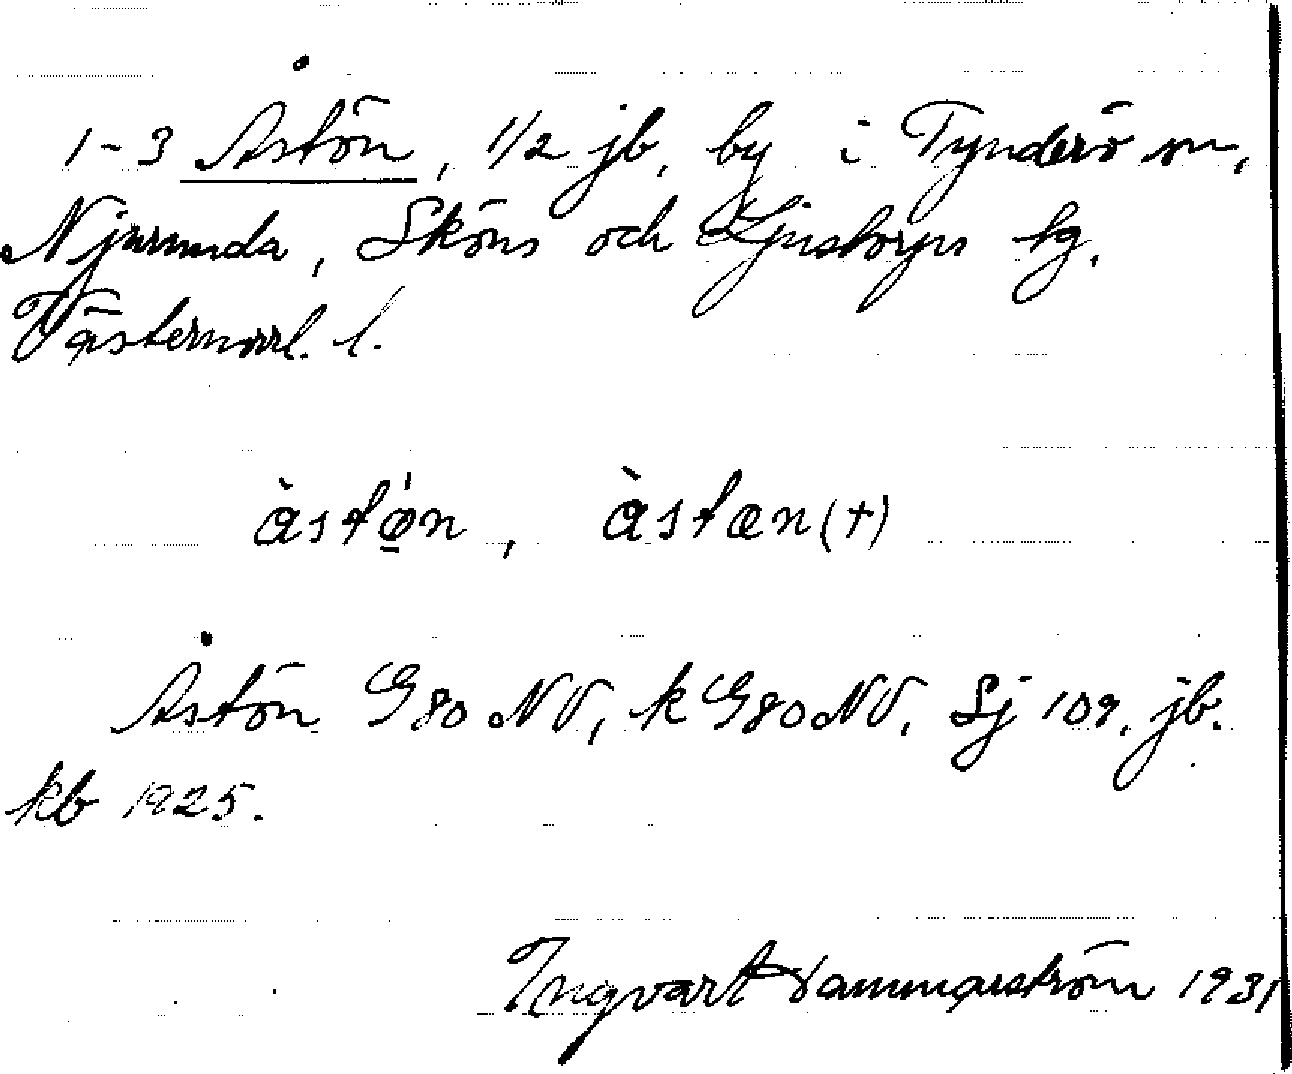 1-3 Åstön, 1/2 jb, by i Tynderö sn,
Njurunda, Sköns och Ljustorps tg.
Västernorrl. l.
àstö̱́n, àstœn(+)
Åstön G80 NV, k G80NV, Sj 109, jb.
kb 1925.
Ingvart Hammarström 1931